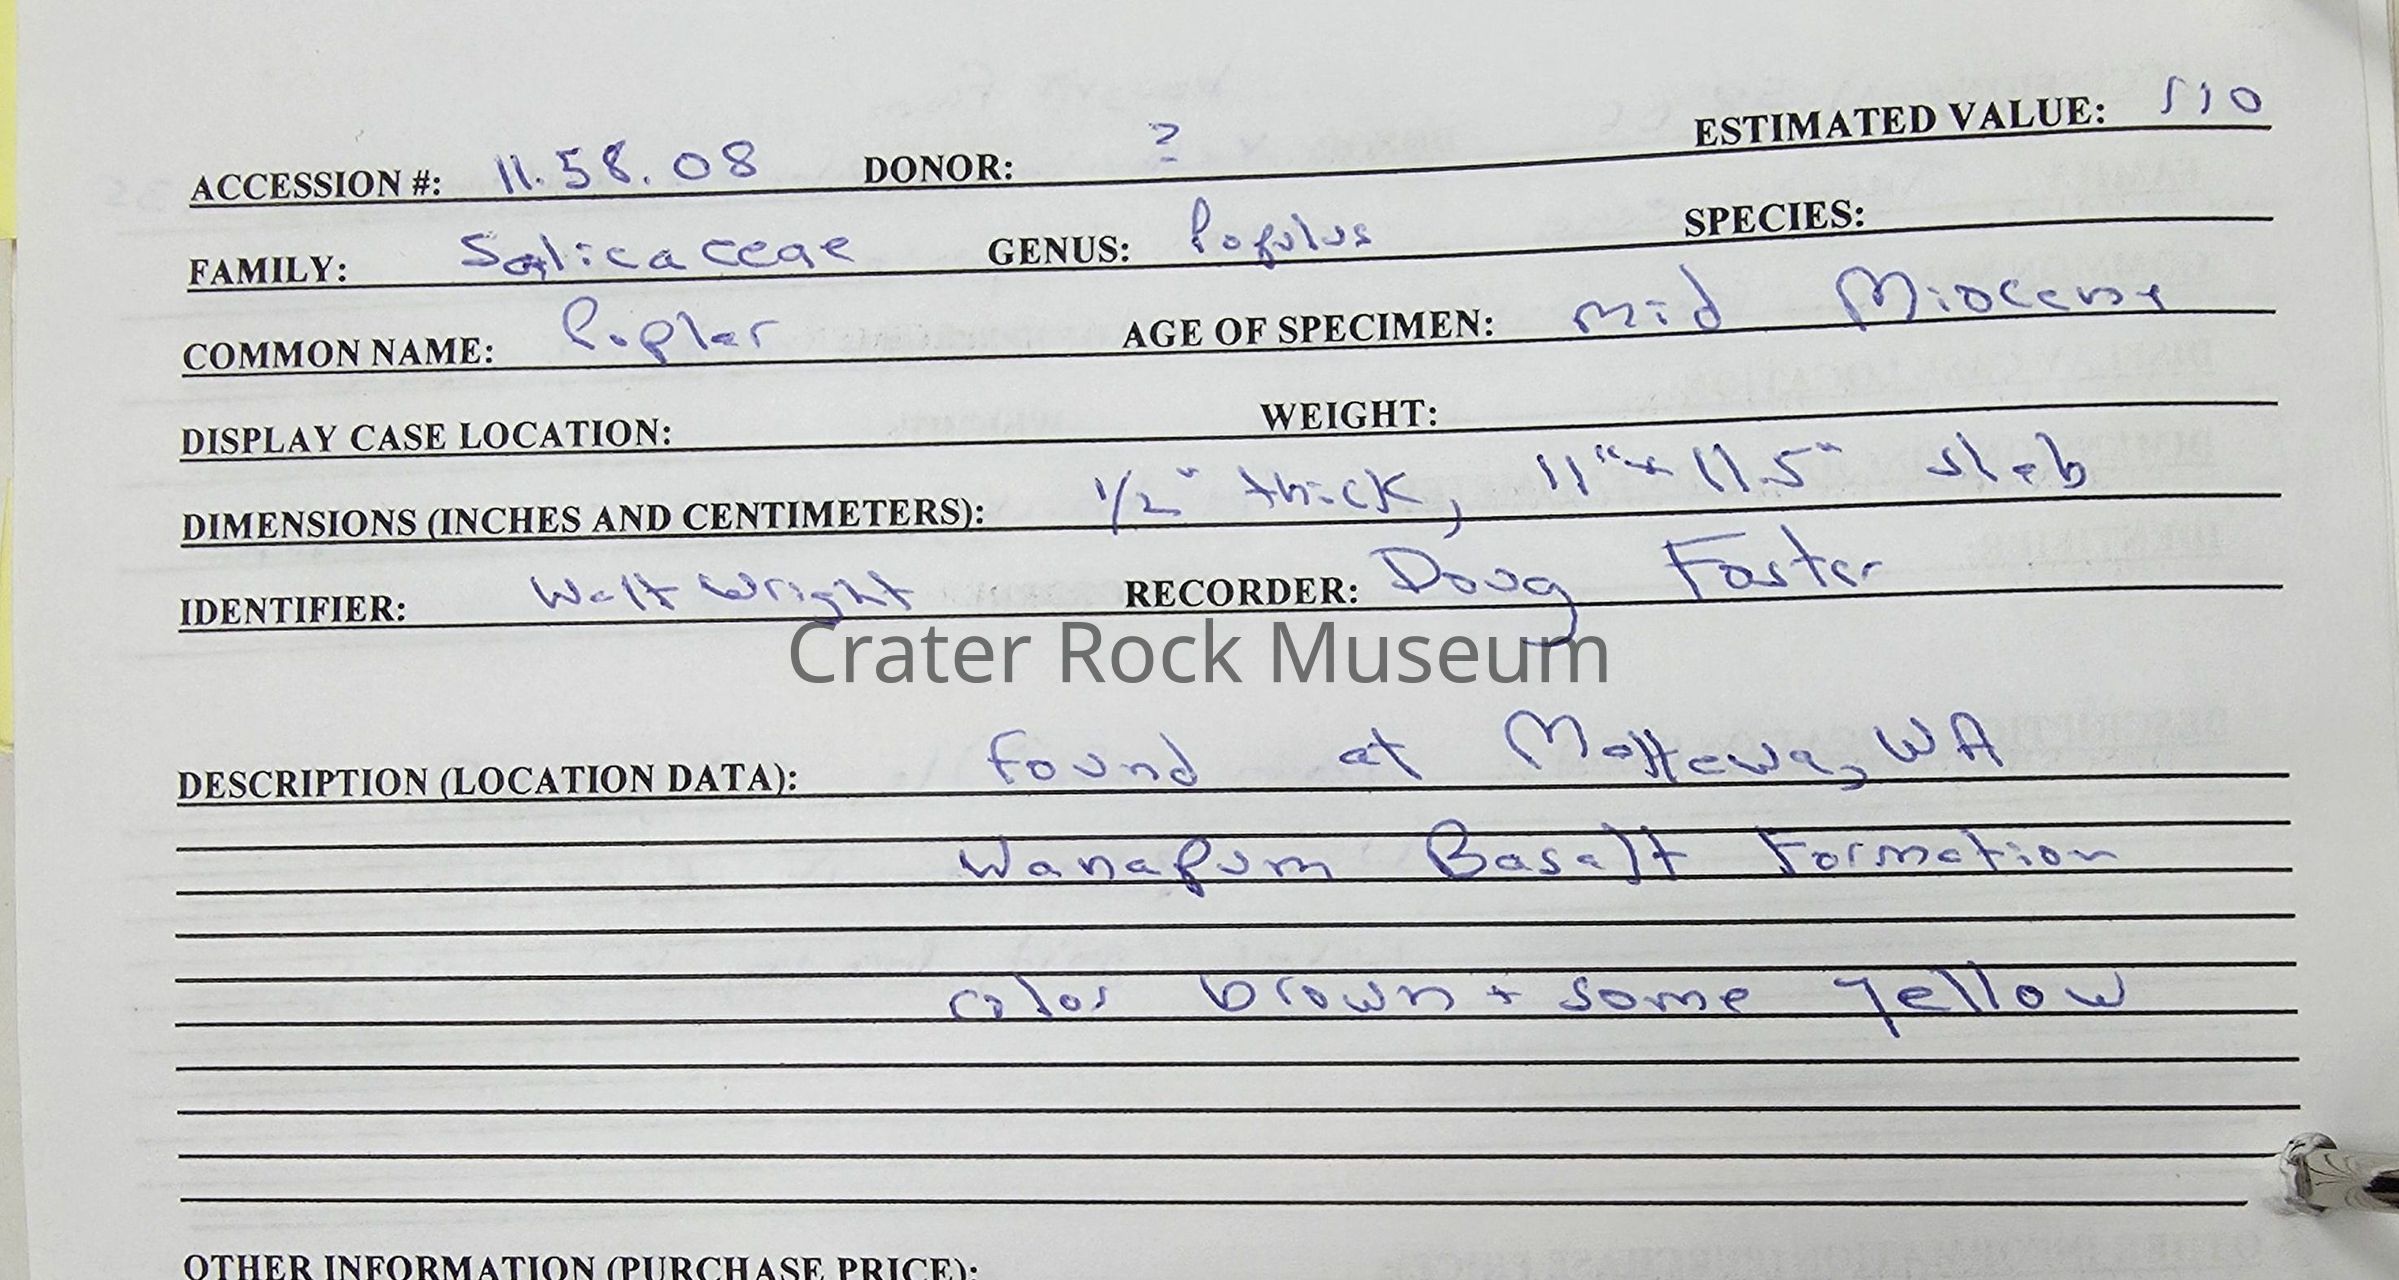 ACCESSION #: 11.58.08 DONOR: ? ESTIMATED VALUE: 510
FAMILY: Salicaceae GENUS: Populus SPECIES:
COMMON NAME: Poplar AGE OF SPECIMEN: mid Miocene
DISPLAY CASE LOCATION: WEIGHT:
DIMENSIONS (INCHES AND CENTIMETERS): 1/2" thick, 11" x 11.5" slab
IDENTIFIER: Walt Wright RECORDER: Doug Foster
Crater Rock Museum
DESCRIPTION (LOCATION DATA): Found at Mattawa, WA
Wanapum Basalt Formation
color brown + some yellow
OTHER INFORMATION (PURCHASE PRICE):